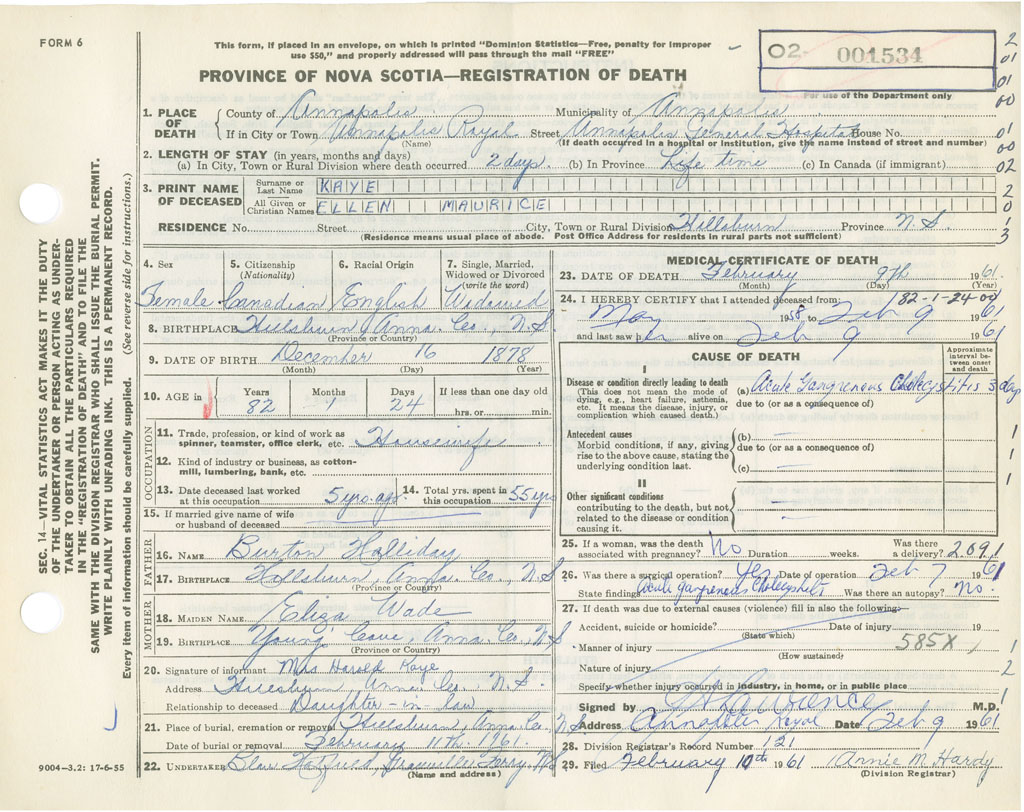 FORM 6
This form, if placed in an envelope, on which is printed "Dominion Statistics—Free, penalty for improper
use $50," and properly addressed will pass through the mail "FREE"
PROVINCE OF NOVA SCOTIA—REGISTRATION OF DEATH
02- 001534
For use of the Department only
1. PLACE OF DEATH
County of Annapolis Municipality of Annapolis
If in City or Town Annapolis Royal Street Annapolis General Hospital House No.
(Name) (If death occurred in a hospital or institution, give the name instead of street and number)
2. LENGTH OF STAY (in years, months and days)
(a) In City, Town or Rural Division where death occurred 2 days. (b) In Province Life time (c) In Canada (if immigrant)
3. PRINT NAME OF DECEASED
Surname or Last Name KAYE
All Given or Christian Names ELLEN MAURICE
RESIDENCE No. Street City, Town or Rural Division Hillsburn Province N.S
(Residence means usual place of abode. Post Office Address for residents in rural parts not sufficient)
4. Sex Female
5. Citizenship (Nationality) Canadian
6. Racial Origin English
7. Single, Married, Widowed or Divorced (write the word) Widowed
8. BIRTHPLACE Hillsburn, Anna. Co., N.S.
(Province or Country)
9. DATE OF BIRTH December 16 1878
(Month) (Day) (Year)
10. AGE in Years 82 Months 1 Days 24 If less than one day old hrs. or min.
OCCUPATION
11. Trade, profession, or kind of work as spinner, teamster, office clerk, etc. Housewife
12. Kind of industry or business, as cotton-mill, lumbering, bank, etc.
13. Date deceased last worked at this occupation 5 yrs. ago
14. Total yrs. spent in this occupation 55 yrs
15. If married give name of wife or husband of deceased
FATHER
16. NAME Burton Holliday
17. BIRTHPLACE Hillsburn, Anna. Co., N.S
(Province or Country)
MOTHER
18. MAIDEN NAME Eliza Wade
19. BIRTHPLACE Young Cove, Anna. Co., N.S
(Province or Country)
20. Signature of informant Mrs Harold Kaye
Address Hillsburn Anna Co., N.S.
Relationship to deceased Daughter-in-law
21. Place of burial, cremation or removal Hillsburn, Anna. Co., N.S
Date of burial or removal February 11th 1961
22. UNDERTAKER Granville Ferry, N.S
(Name and address)
MEDICAL CERTIFICATE OF DEATH
23. DATE OF DEATH February 9th 1961
(Month) (Day) (Year)
24. I HEREBY CERTIFY that I attended deceased from: 82-1-24-00
May 1958 to Feb 9 1961
and last saw her alive on Feb 9 1961
CAUSE OF DEATH
Approximate interval between onset and death
I
Disease or condition directly leading to death
(This does not mean the mode of dying, e.g., heart failure, asthenia, etc. It means the disease, injury, or complication which caused death.)
(a) Acute Gangrenous Cholecystitis 3 days
due to (or as a consequence of)
Antecedent causes
Morbid conditions, if any, giving rise to the above cause, stating the underlying condition last.
(b)
due to (or as a consequence of)
(c)
II
Other significant conditions
contributing to the death, but not related to the disease or condition causing it.
25. If a woman, was the death associated with pregnancy? No Duration weeks. Was there a delivery?
26. Was there a surgical operation? Yes Date of operation Feb 7 1961
State findings Acute gangrenous Cholecystitis Was there an autopsy? No.
27. If death was due to external causes (violence) fill in also the following:
Accident, suicide or homicide? Date of injury 19
(State which)
Manner of injury 585X
(How sustained)
Nature of injury
Specify whether injury occurred in industry, in home, or in public place
Signed by M.D.
Address Annapolis Royal Date Feb 9 1961
28. Division Registrar's Record Number 121
29. Filed February 10th 1961 Annie M. Hardy
(Division Registrar)
SEC. 14—VITAL STATISTICS ACT MAKES IT THE DUTY
OF THE UNDERTAKER OR PERSON ACTING AS UNDERTAKER
TO OBTAIN ALL THE PARTICULARS REQUIRED
IN THE "REGISTRATION OF DEATH" AND TO FILE THE
SAME WITH THE DIVISION REGISTRAR WHO SHALL ISSUE THE BURIAL PERMIT.
WRITE PLAINLY WITH UNFADING INK. THIS IS A PERMANENT RECORD.
Every item of information should be carefully supplied. (See reverse side for instructions.)
9004-3.2: 17-6-55